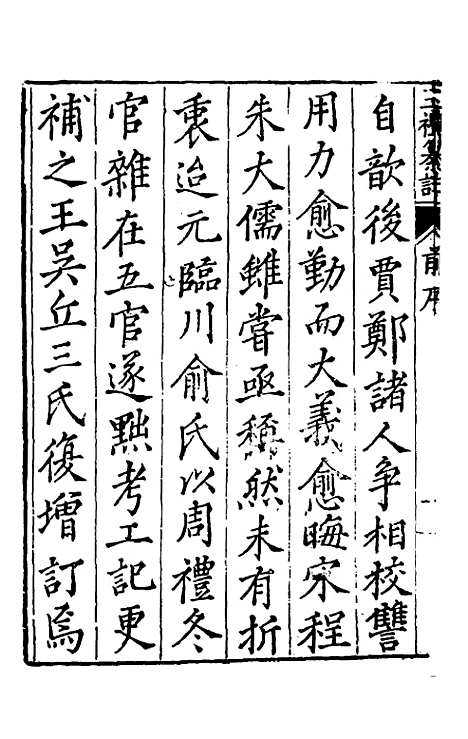 三禮纂註 前序
自歆後賈鄭諸人争相校讐
用力愈勤而大義愈晦宋程
朱大儒雖嘗亟稱然未有折
衷迨元臨川俞氏以周禮冬
官雜在五官遂黜考工記更
補之王吳丘三氏復增訂焉